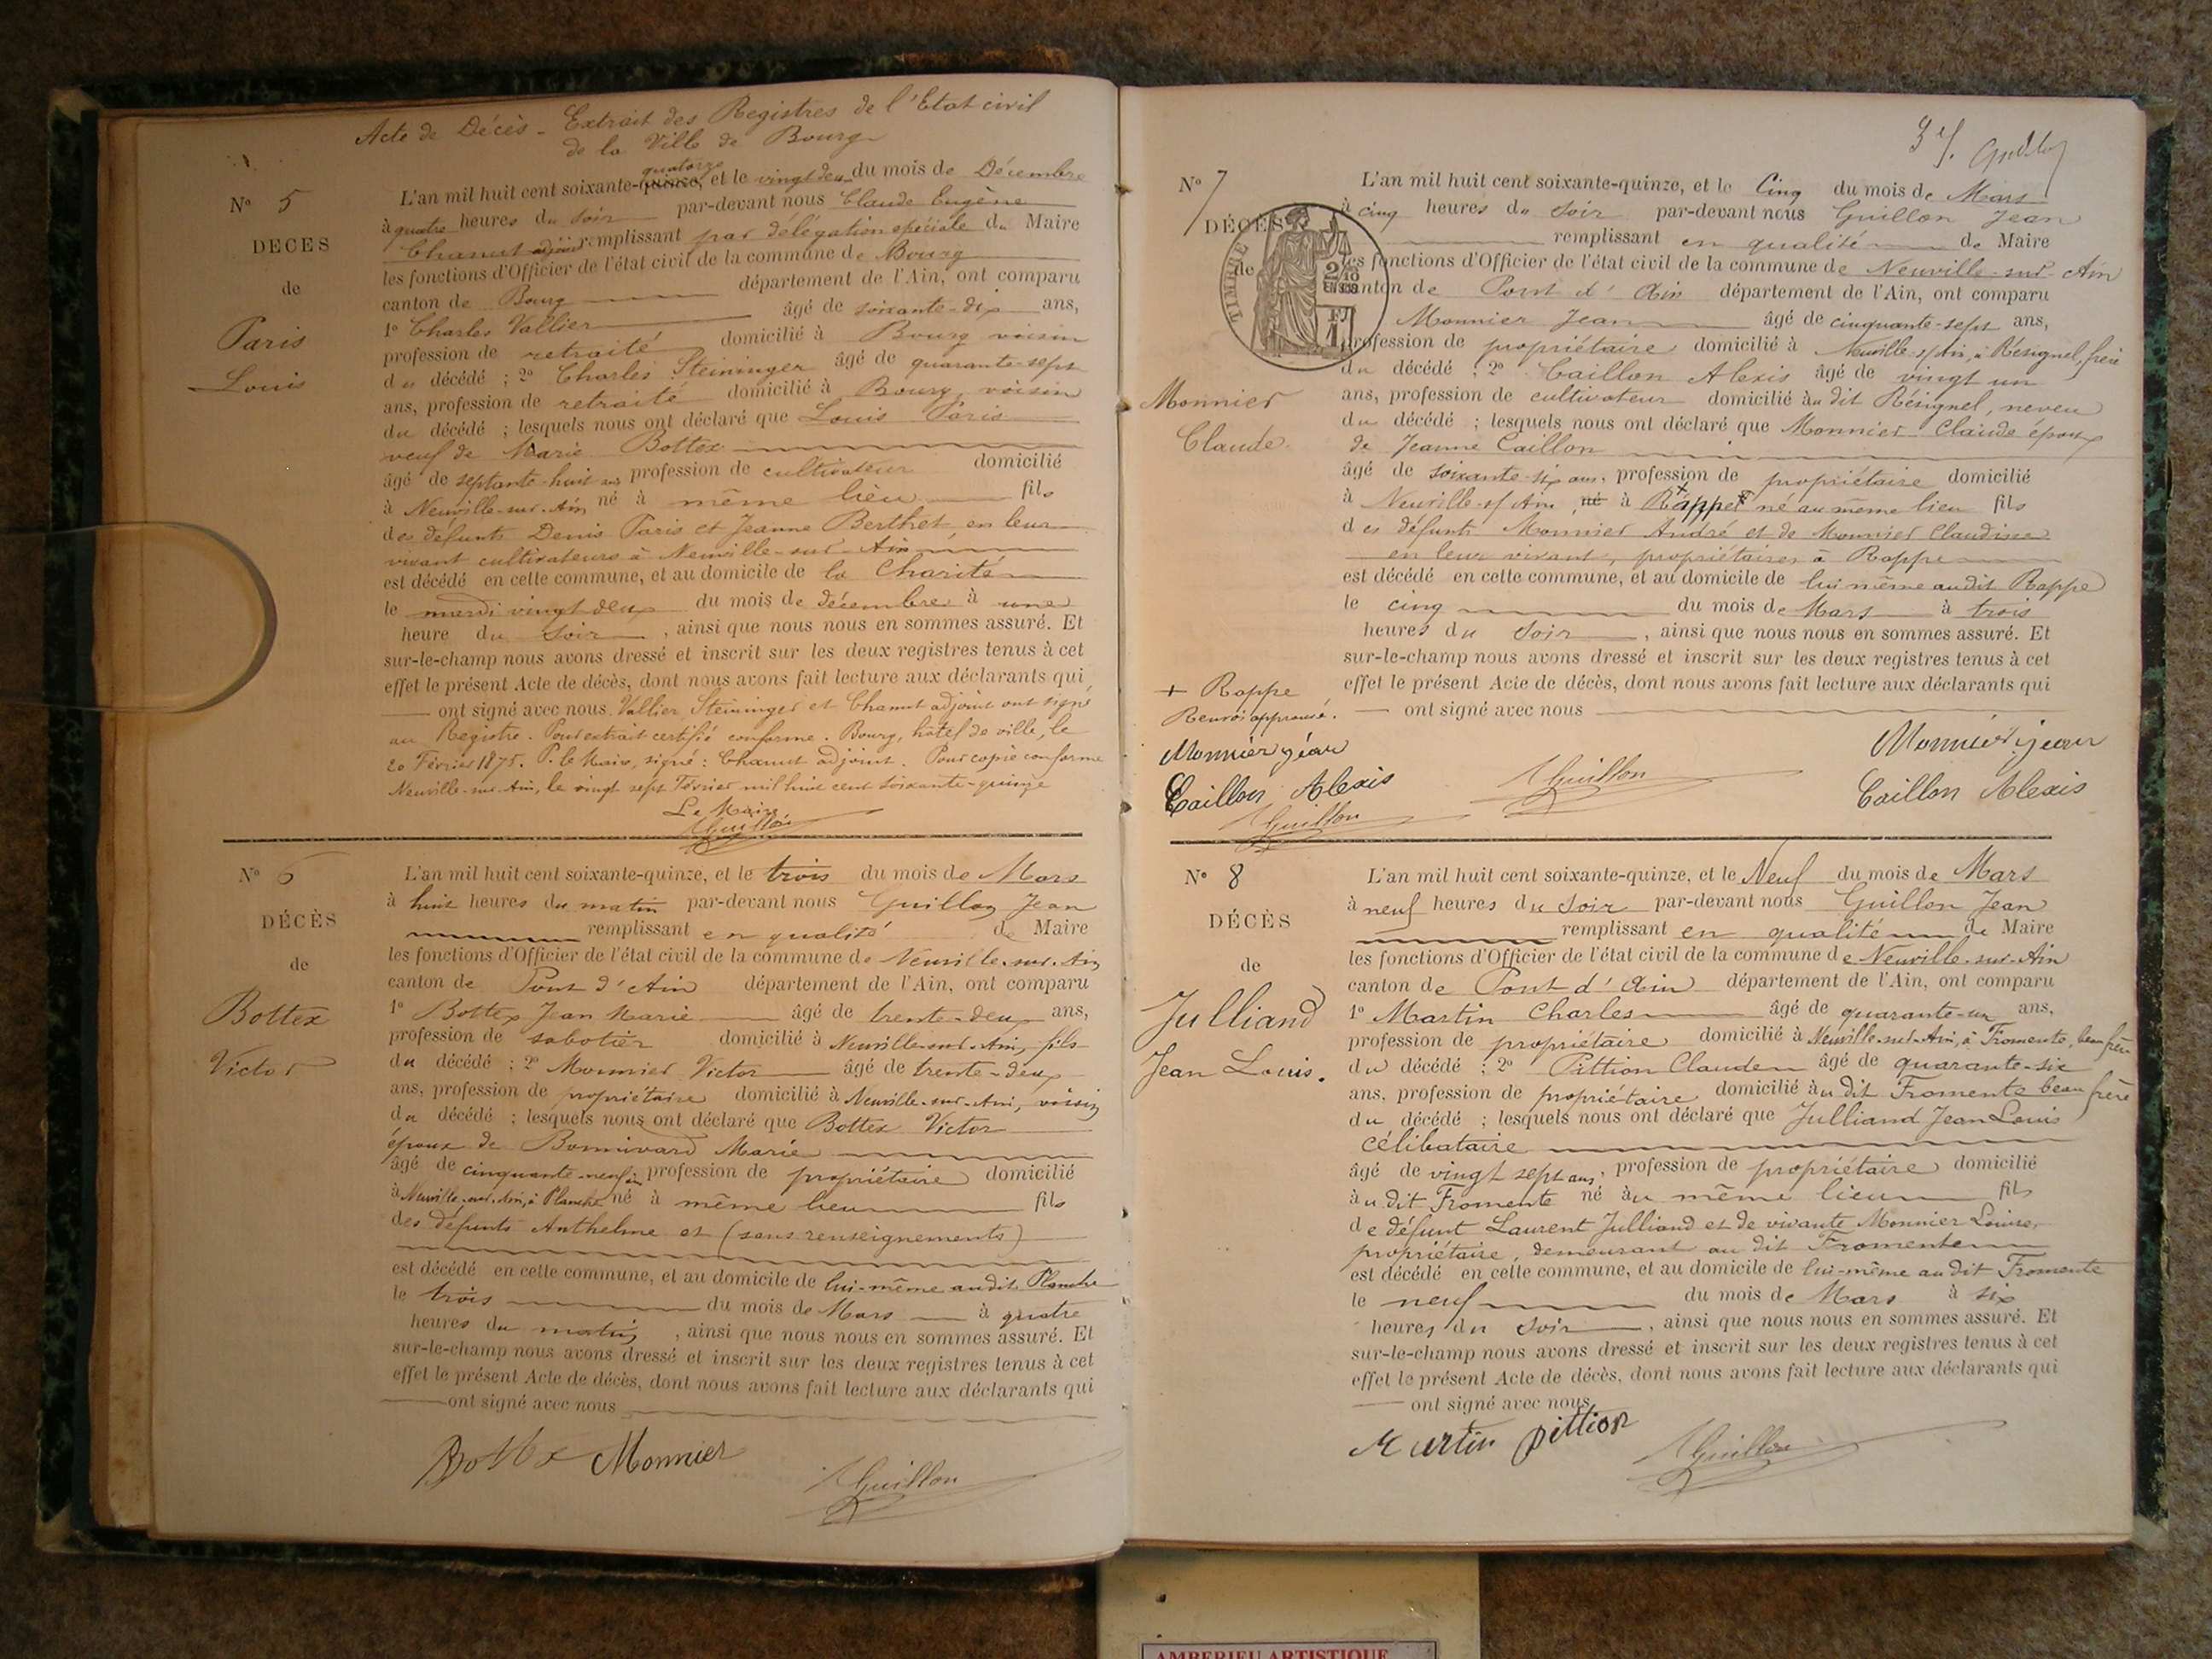 Acte de Décès - Extrait des Registres de l'Etat civil
de la Ville de Bourg
N° 5
DÉCÈS
de
Paris
Louis
quatorze
L'an mil huit cent soixante-quinze, et le vingt deux du mois de Décembre
à quatre heures du soir par-devant nous Claude Eugène
Chanut adjoint remplissant par délégation spéciale du Maire
les fonctions d'Officier de l'état civil de la commune de Bourg
canton de Bourg département de l'Ain, ont comparu
1° Charles Vallier âgé de soixante-dix ans,
profession de retraité domicilié à Bourg voisin
du décédé ; 2° Charles Steininger âgé de quarante-sept
ans, profession de retraité domicilié à Bourg, voisin
du décédé ; lesquels nous ont déclaré que Louis Paris
veuf de Marie Bottex
âgé de septante-huit ans profession de cultivateur domicilié
à Neuville-sur-Ain, né à même lieu fils
des défunts Denis Paris et Jeanne Berthet, en leur
vivant cultivateurs à Neuville-sur-Ain
est décédé en cette commune, et au domicile de la Charité
le mardi vingt deux du mois de décembre à une
heure du soir, ainsi que nous nous en sommes assuré. Et
sur-le-champ nous avons dressé et inscrit sur les deux registres tenus à cet
effet le présent Acte de décès, dont nous avons fait lecture aux déclarants qui
ont signé avec nous. Vallier, Steininger et Chanut adjoint ont signé
au Registre. Pour extrait certifié conforme. Bourg, hôtel de ville, le
20 Février 1875. P. le Maire, signé : Chanut adjoint. Pour copie conforme
Neuville-sur-Ain, le vingt sept Février mil huit cent soixante-quinze
Le Maire
Guillon
N° 6
DÉCÈS
de
Bottex
Victor
L'an mil huit cent soixante-quinze, et le trois du mois de Mars
à huit heures du matin par-devant nous Guillon Jean
remplissant en qualité de Maire
les fonctions d'Officier de l'état civil de la commune de Neuville-sur-Ain
canton de Pont d'Ain département de l'Ain, ont comparu
1° Bottex Jean Marie âgé de trente-deux ans,
profession de sabotier domicilié à Neuville-sur-Ain, fils
du décédé ; 2° Monnier Victor âgé de trente-deux
ans, profession de propriétaire domicilié à Neuville-sur-Ain, voisin
du décédé ; lesquels nous ont déclaré que Bottex Victor
époux de Bonnivard Marie
âgé de cinquante-neuf ans profession de propriétaire domicilié
à Neuville-sur-Ain, à Planche né à même lieu fils
des défunts Anthelme et (sans renseignements)
est décédé en cette commune, et au domicile de lui-même audit Planche
le trois du mois de Mars à quatre
heures du matin, ainsi que nous nous en sommes assuré. Et
sur-le-champ nous avons dressé et inscrit sur les deux registres tenus à cet
effet le présent Acte de décès, dont nous avons fait lecture aux déclarants qui
ont signé avec nous
Bottex Monnier
Guillon
N° 7
DÉCÈS
de
Monnier
Claude
TIMBRE
L'an mil huit cent soixante-quinze, et le Cinq du mois de Mars
à cinq heures du soir par-devant nous Guillon Jean
remplissant en qualité de Maire
les fonctions d'Officier de l'état civil de la commune de Neuville-sur-Ain
canton de Pont d'Ain département de l'Ain, ont comparu
Monnier Jean âgé de cinquante-sept ans,
profession de propriétaire domicilié à Neuville-s/Ain, à Résignel, frère
du décédé ; 2° Caillon Alexis âgé de vingt un
ans, profession de cultivateur domicilié au dit Résignel, neveu
du décédé ; lesquels nous ont déclaré que Monnier Claude époux
de Jeanne Caillon
âgé de soixante-six ans, profession de propriétaire domicilié
à Neuville-s/Ain, né à Rappe né au même lieu fils
des défunts Monnier André et de Monnier Claudine
en leur vivant, propriétaires à Rappe
est décédé en cette commune, et au domicile de lui même audit Rappe
le cinq du mois de Mars à trois
heures du soir, ainsi que nous nous en sommes assuré. Et
sur-le-champ nous avons dressé et inscrit sur les deux registres tenus à cet
effet le présent Acte de décès, dont nous avons fait lecture aux déclarants qui
ont signé avec nous
+ Rappe
Renvoi approuvé.
Monnier jean
Caillon Alexis
Guillon
Guillon
Monnier jean
Caillon Alexis
N° 8
DÉCÈS
de
Julliand
Jean Louis.
L'an mil huit cent soixante-quinze, et le Neuf du mois de Mars
à neuf heures du soir par-devant nous Guillon Jean
remplissant en qualité de Maire
les fonctions d'Officier de l'état civil de la commune de Neuville-sur-Ain
canton de Pont d'Ain département de l'Ain, ont comparu
1° Martin Charles âgé de quarante-un ans,
profession de propriétaire domicilié à Neuville-sur-Ain, à Fromente, beau frère
du décédé ; 2° Pittion Claude âgé de quarante-six
ans, profession de propriétaire domicilié au dit Fromente beau frère
du décédé ; lesquels nous ont déclaré que Julliand Jean Louis
célibataire
âgé de vingt sept ans, profession de propriétaire domicilié
au dit Fromente né au même lieu fils
de défunt Laurent Julliand et de vivante Monnier Louise,
propriétaire, demeurant au dit Fromente
est décédé en cette commune, et au domicile de lui-même au dit Fromente
le neuf du mois de Mars à six
heures du soir, ainsi que nous nous en sommes assuré. Et
sur-le-champ nous avons dressé et inscrit sur les deux registres tenus à cet
effet le présent Acte de décès, dont nous avons fait lecture aux déclarants qui
ont signé avec nous
Martin Pittion
Guillon
AMBERIEU ARTISTIQUE